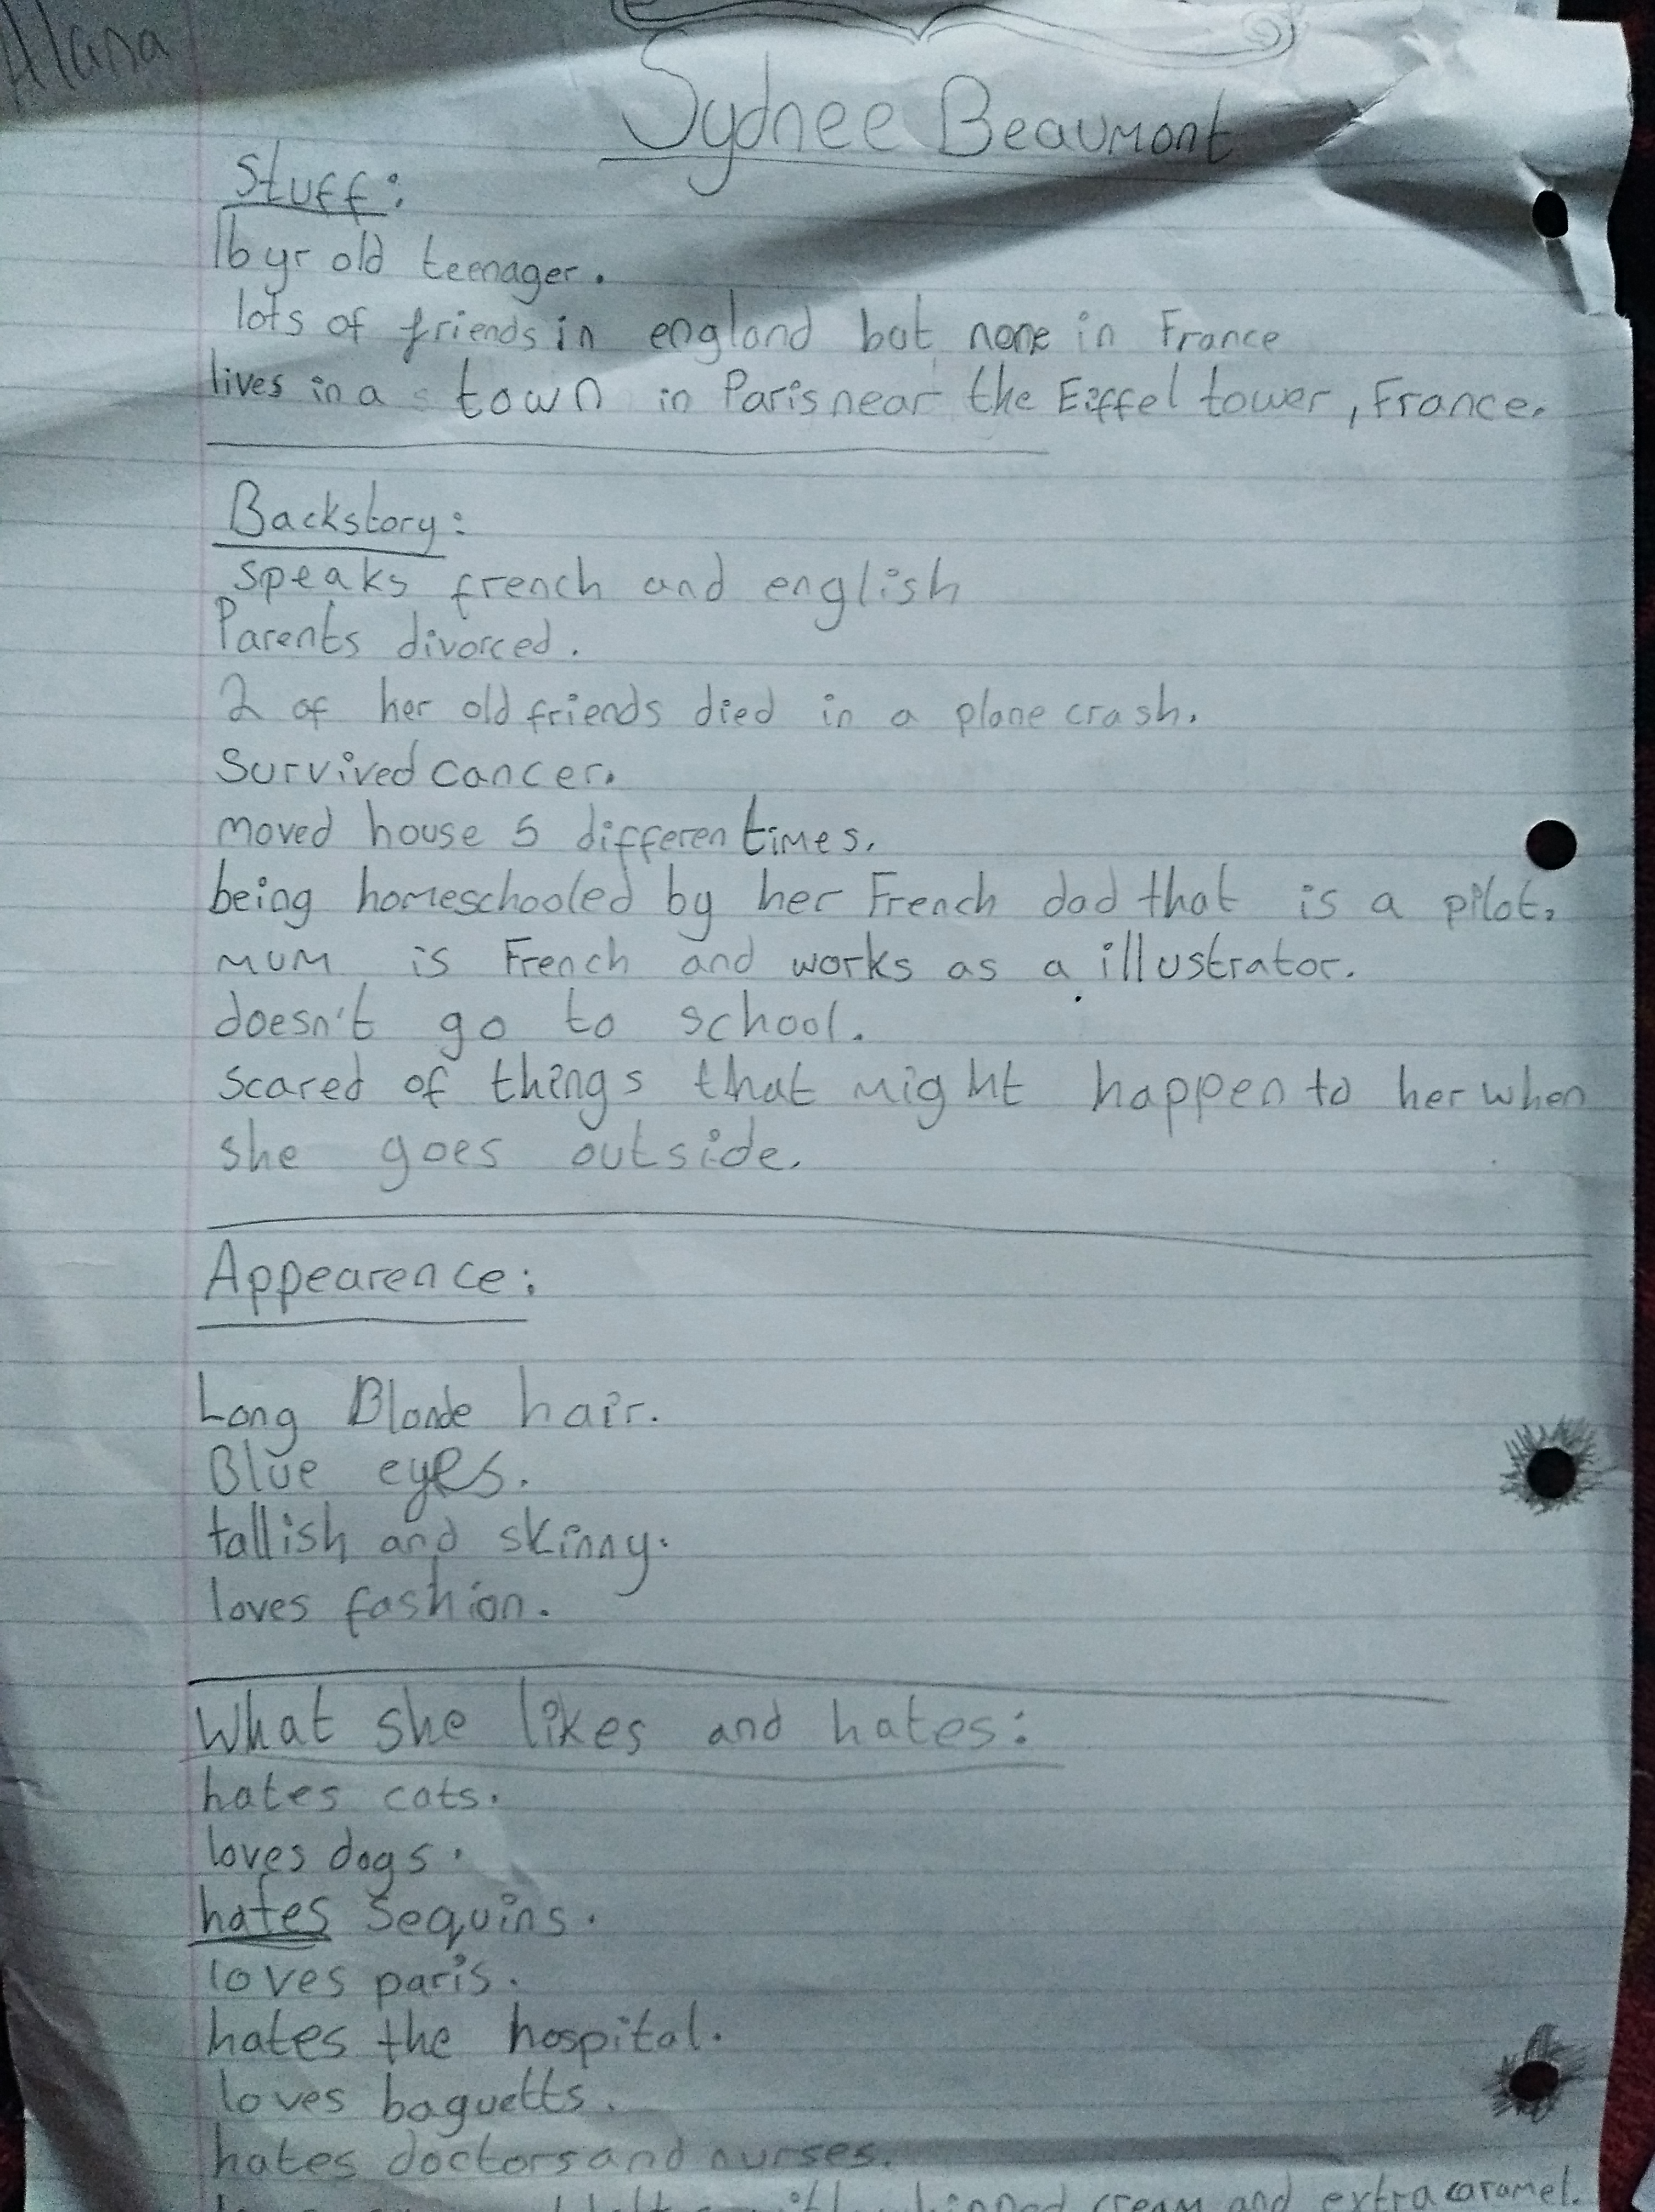 Alana
Sydnee Beaumont
Stuff:
16 yr old teenager.
lots of friends in england but none in France
lives in a town in Paris near the Eiffel tower, France.
Backstory:
speaks french and english
Parents divorced.
2 of her old friends died in a plane crash.
Survived cancer.
moved house 5 differen times.
being homeschooled by her French dad that is a pilot.
mum is French and works as a illustrator.
doesn't go to school.
scared of things that might happen to her when
she goes outside.
Appearence:
Long Blonde hair.
Blue eyes.
tallish and skinny.
loves fashion.
What she likes and hates:
hates cats.
loves dogs.
hates sequins.
loves paris.
hates the hospital.
loves baguetts.
hates doctors and nurses.
cream and extra caramel.